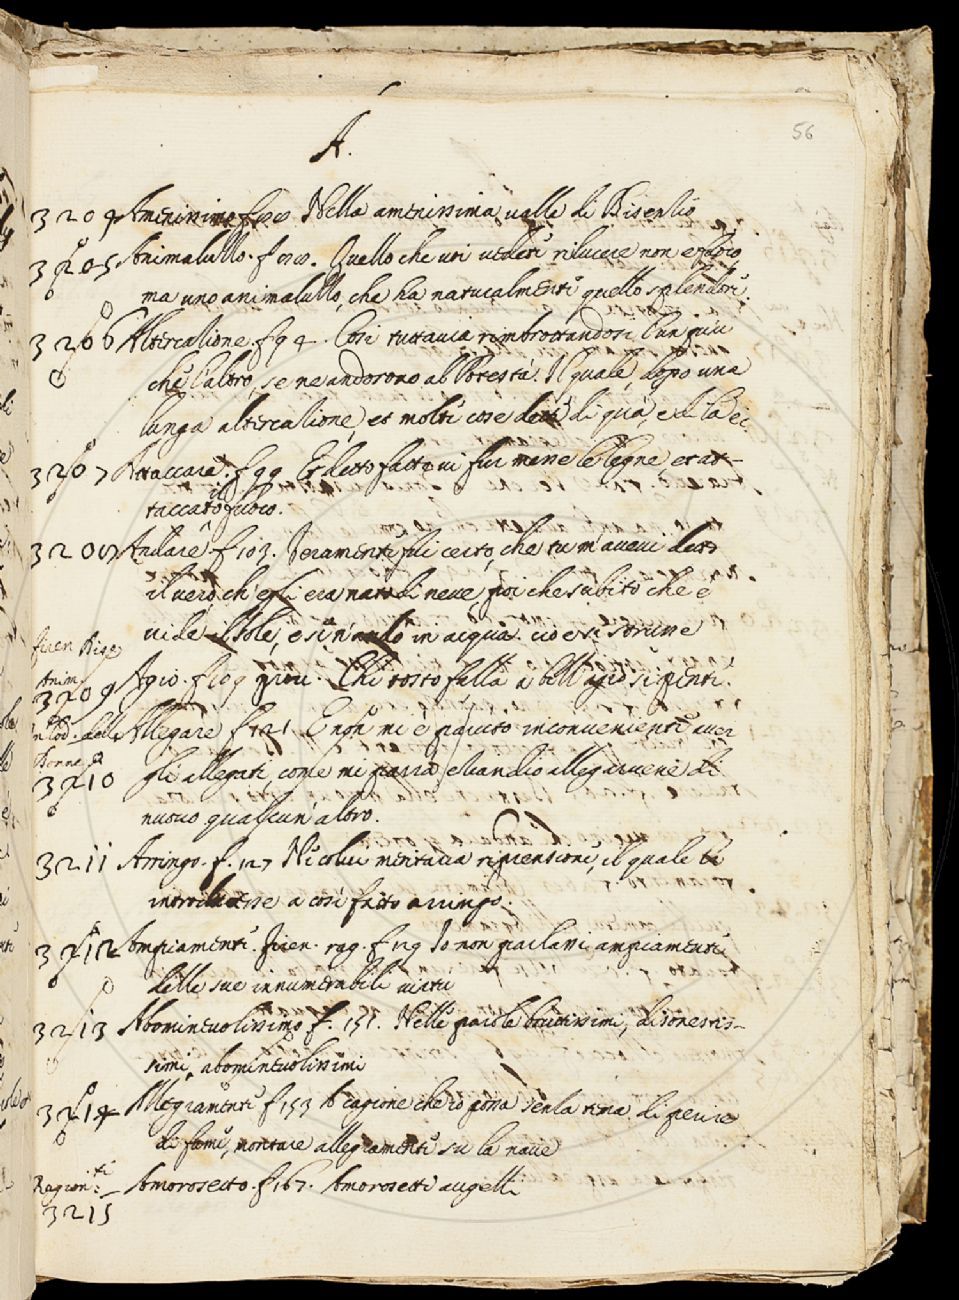 56
A.
3204 Amenissimo f. Nella amenissima ualle di Bisentio
3205 Animaluzzo. f. Quello che uoi uedete rilucere non e foco
ma uno animaluzzo, che ha naturalmente quello splendore
3206 Altercatione. f 94. Cosi tuttauia rimbrottandosi l'un piu
che l'altro, se ne andorono al Potestà. Il quale, dopo una
lunga altercatione, et molte cose dette di quà, e di la
3207 Attaccare. f 99 Et detto fatto ui fur messe le legne, et at-
taccato il fuoco.
3208 Andare f 103. Veramente fu certo, che tu m'aueui detto
il uero ch'egli era nato di neue, poi che subito che e
uide il Sole, e si n'andò in acqua. cioe si strusse
Firen Rag
Anim
3209 Agio. f 109 Chi tosto falla a bell'agio si penti.
in Lod. delle Donne
3210 Allegare f 121. E non mi è paruto inconueniente auer
gli allegati, come mi parrà etiandio allegaruene di
nuouo qualcun'altro.
3211 Arringo. f. 127 Ne colui meritaua riprensione, il quale lo
introducesse a così fatto arringo.
3212 Ampiamente. Firen. rag. f 129 Io non parlassi ampiamente
delle sue innumerabili uirtù
3213 Abomineuolissimo f. 151. Nelle parole bruttissime, disonestis-
sime, abomineuolissime
3214 Allegramente f 153 cagione che io possa senza tema di
di fame, montare allegramente su la naue
Ragion.ti
3215 Amorosetto. f 167. Amorosetti augelli